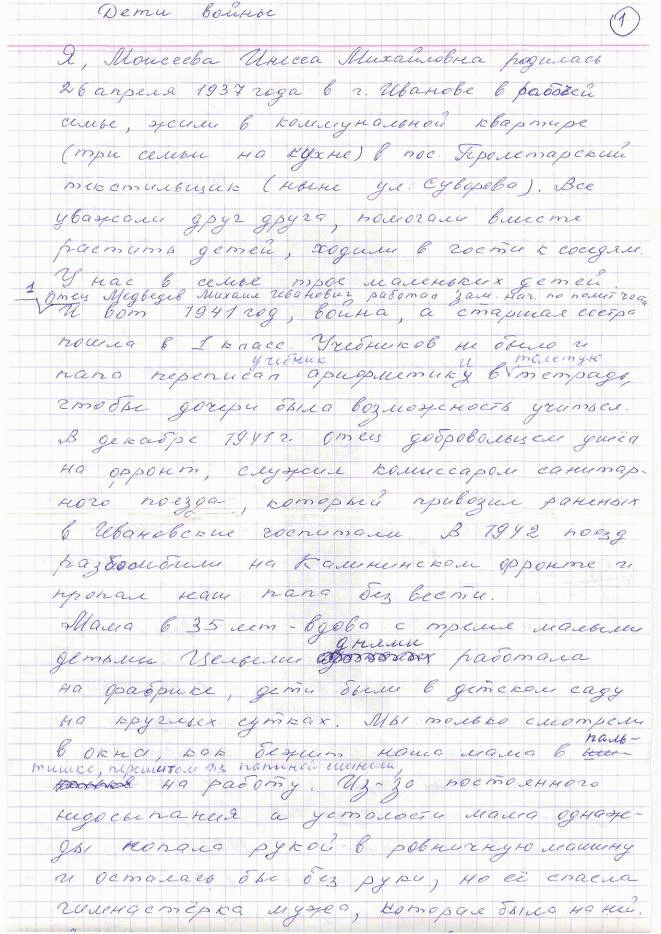 Дети войны
1
Я, Моисеева Инесса Михайловна родилась
26 апреля 1937 года в г. Иванове в рабочей
семье, жили в коммунальной квартире
(три семьи на кухне) в пос. Пролетарский
текстильщик (ныне ул. Суворова). Все
уважали друг друга, помогали вместе
растить детей, ходили в гости к соседям.
У нас в семье трое маленьких детей.
1 Отец Медведев Михаил Иванович работал зам. нач. по полит части
И вот 1941 год, война, а старшая сестра
пошла в 1 класс. Учебников не было и
учебник и толстую
папа переписал арифметику в тетрадь,
чтобы дочери была возможность учиться.
В декабре 1941 г. отец добровольцем ушёл
на фронт, служил комиссаром санитар-
ного поезда, который привозил раненых
в Ивановские госпитали. В 1942 поезд
разбомбили на Калининском фронте и
пропал наш папа без вести.
Мама в 35 лет - вдова с тремя малыми
днями
детьми. Целыми работала
на фабрике, дети были в детском саду
на круглых сутках. Мы только смотрели
в окна, как бежит наша мама в паль-
тишке, перешитом из папиной шинели,
на работу. Из-за постоянного
недосыпания и усталости мама однаж-
ды попала рукой в ровничную машину
и осталась бы без руки, но её спасла
гимнастёрка мужа, которая была на ней.